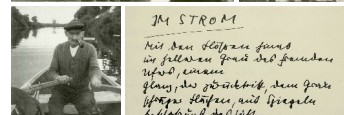 IM STROM
Mit den Flößen hinab
im helleren Grau des fremden
Ufers, einem
Glanz, der zurücktritt, dem Grau
schräger Flächen, aus Spiegeln